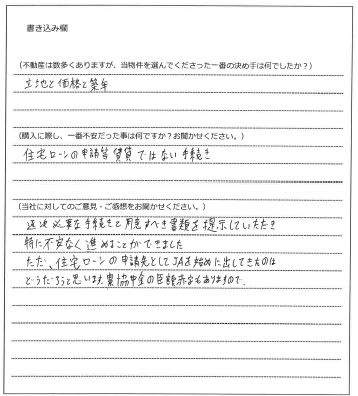 書き込み欄
(不動産は数多くありますが、当物件を選んでくださった一番の決め手は何でしたか?)
立地と価格と築年
(購入に際し、一番不安だった事は何ですか?お聞かせください。)
住宅ローンの申請等 賃貸ではない手続き
(当社に対してのご意見・ご感想をお聞かせください。)
逐次必要な手続きと用意すべき書類を提示していただき
特に不安なく進めることができました
ただ、住宅ローンの申請先としてJAを始めに出してきたのは
どうだろうと思います 農協中金の巨額赤字もありますので.